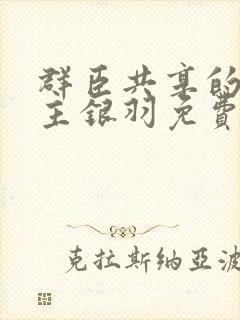 群臣共享的
主银羽免费
克拉斯纳亚波